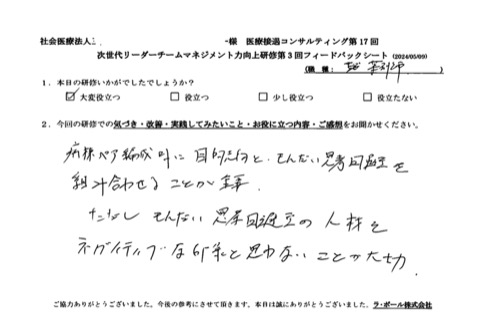 社会医療法人 様 医療接遇コンサルティング第17回
次世代リーダーチームマネジメント力向上研修第3回フィードバックシート (2024/05/09)
(職 種: 看護師)
1. 本日の研修いかがでしたでしょうか?
☑ 大変役立つ □ 役立つ □ 少し役立つ □ 役立たない
2. 今回の研修での気づき・改善・実践してみたいこと・お役に立つ内容・ご感想をお聞かせください。
病棟ペア編成時に目的志向と、そんない思考回避を
組み合わせることが重要。
ただし そんない 思考回避立の人材を
ネガティブな印象と思わないことが大切
ご協力ありがとうございました。今後の参考にさせて頂きます。本日は誠にありがとうございました。ラ・ポール株式会社